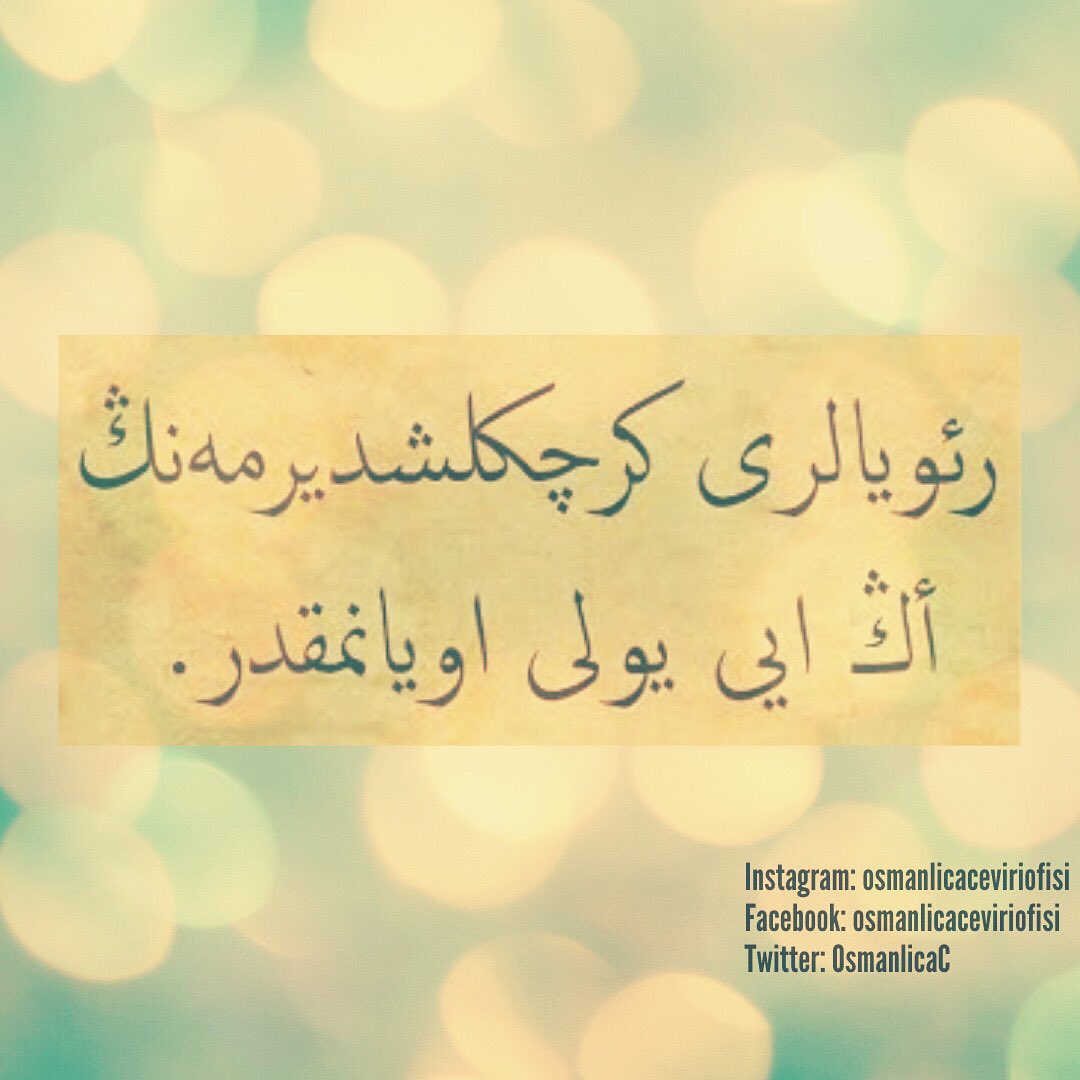 رئويالرى كرچكلشديرمەنڭ
أڭ ايي يولى اويانمقدر.
Instagram: osmanlicaceviriofisi
Facebook: osmanlicaceviriofisi
Twitter: OsmanlicaC